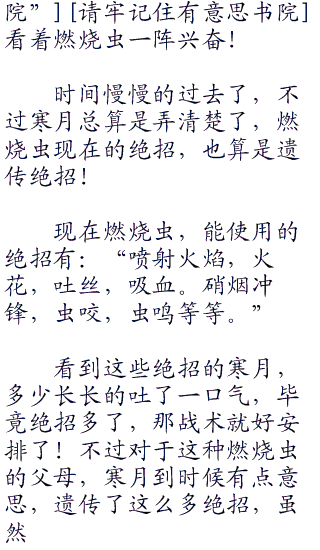 院”][请牢记住有意思书院]
看着燃烧虫一阵兴奋！
时间慢慢的过去了，不
过寒月总算是弄清楚了，燃
烧虫现在的绝招，也算是遗
传绝招！
现在燃烧虫，能使用的
绝招有：“喷射火焰，火
花，吐丝，吸血。硝烟冲
锋，虫咬，虫鸣等等。”
看到这些绝招的寒月，
多少长长的吐了一口气，毕
竟绝招多了，那战术就好安
排了！不过对于这种燃烧虫
的父母，寒月到时候有点意
思，遗传了这么多绝招，虽
然